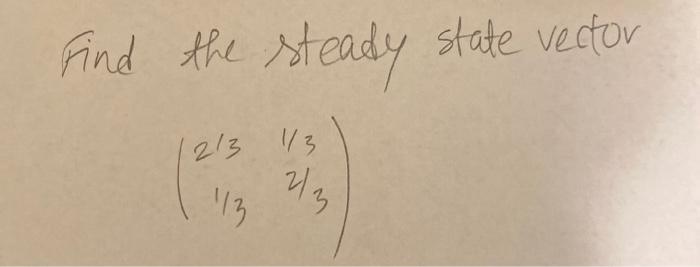 Find the steady state vector
2/3 1/3
1/3 2/3